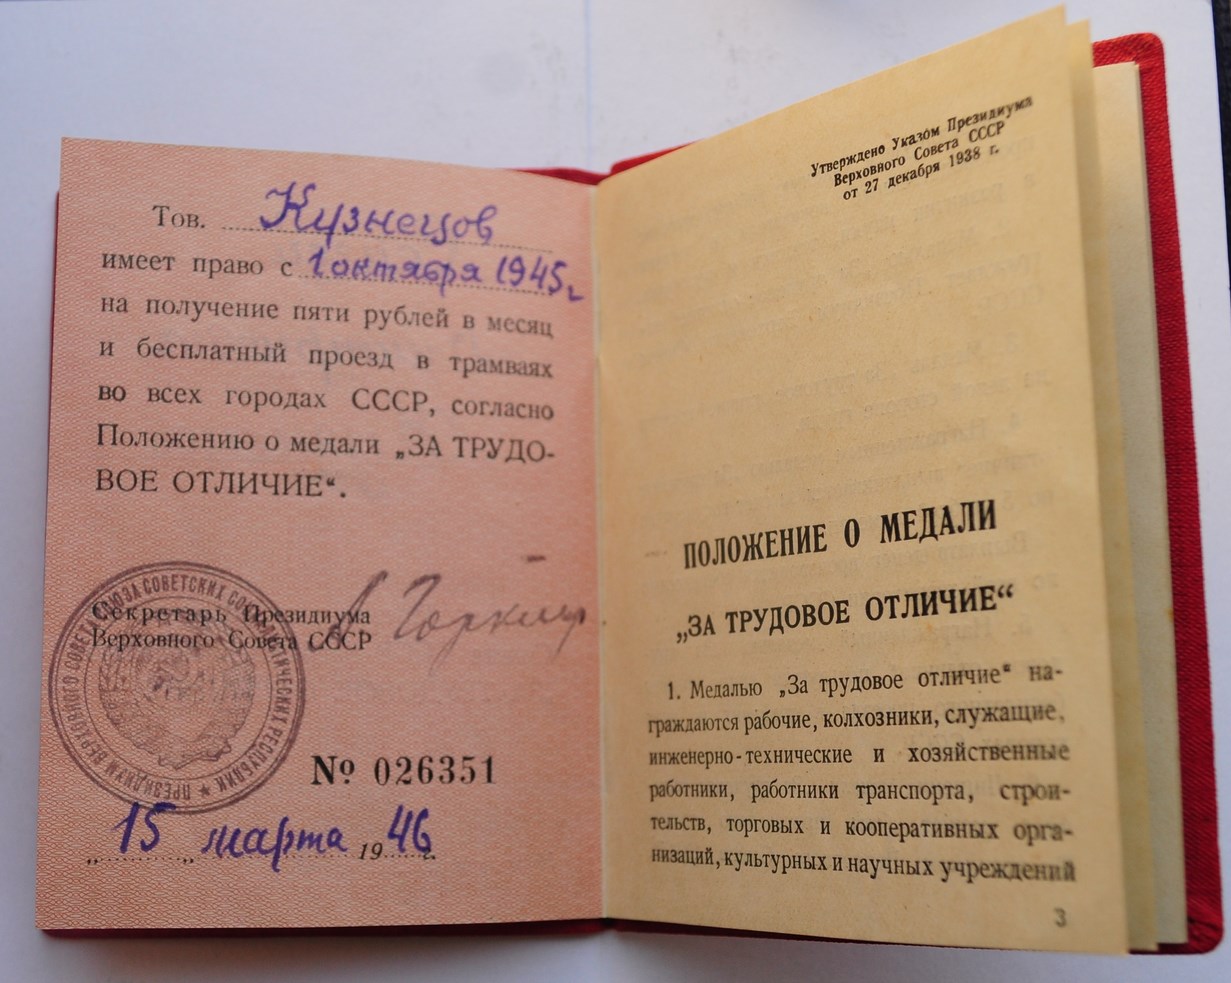 Тов. Кузнецов
имеет право с 1 октября 1945 г.
на получение пяти рублей в месяц
и бесплатный проезд в трамваях
во всех городах СССР, согласно
Положению о медали „ЗА ТРУДО-
ВОЕ ОТЛИЧИЕ“.
Секретарь Президиума
Верховного Совета СССР
А Горкин
ПРЕЗИДИУМ ВЕРХОВНОГО СОВЕТА СОЮЗА СОВЕТСКИХ СОЦИАЛИСТИЧЕСКИХ РЕСПУБЛИК ★
№ 026351
„15„ марта 1946 г.
Утверждено Указом Президиума
Верховного Совета СССР
от 27 декабря 1938 г.
ПОЛОЖЕНИЕ О МЕДАЛИ
„ЗА ТРУДОВОЕ ОТЛИЧИЕ“
1. Медалью „За трудовое отличие“ на-
граждаются рабочие, колхозники, служащие,
инженерно-технические и хозяйственные
работники, работники транспорта, строи-
тельств, торговых и кооперативных орга-
низаций, культурных и научных учреждений
3